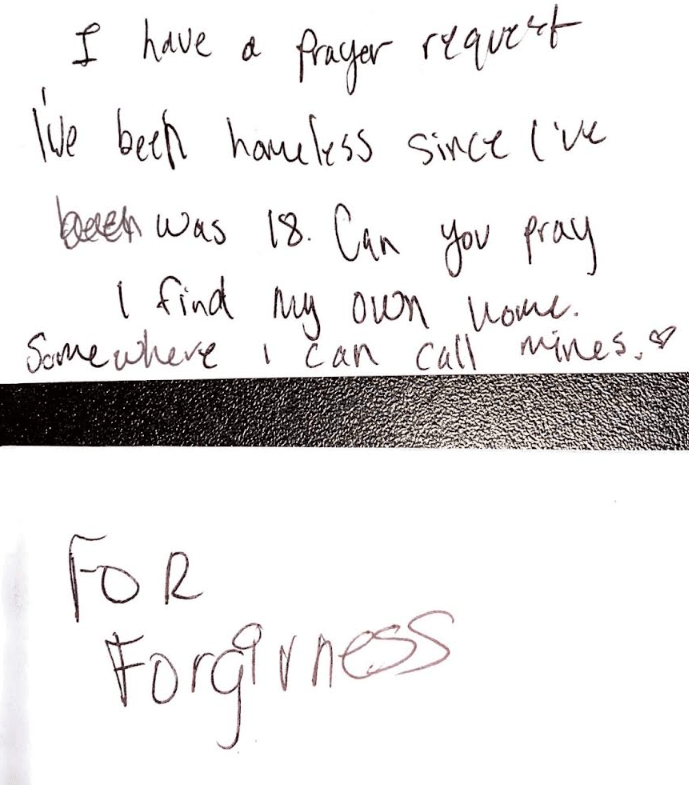 I have a prayer request
I've been homeless since I've
been was 18. Can you pray
I find my own home.
Somewhere i can call mines.
FOR
Forgivness